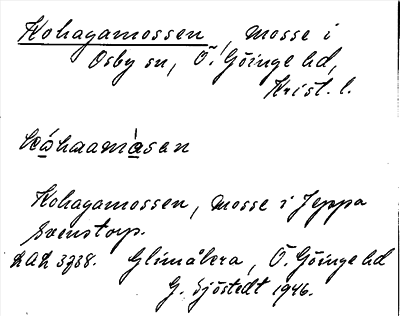 Kohagamossen, mosse i
Osby sn, Ö. Göinge hd,
Krist. l.
kåhaamåsen
Kohagamossen, mosse i Jeppa
Svenstorp.
LAL 3738. Glimåkra, Ö. Göinge hd
G. Sjöstedt 1946.